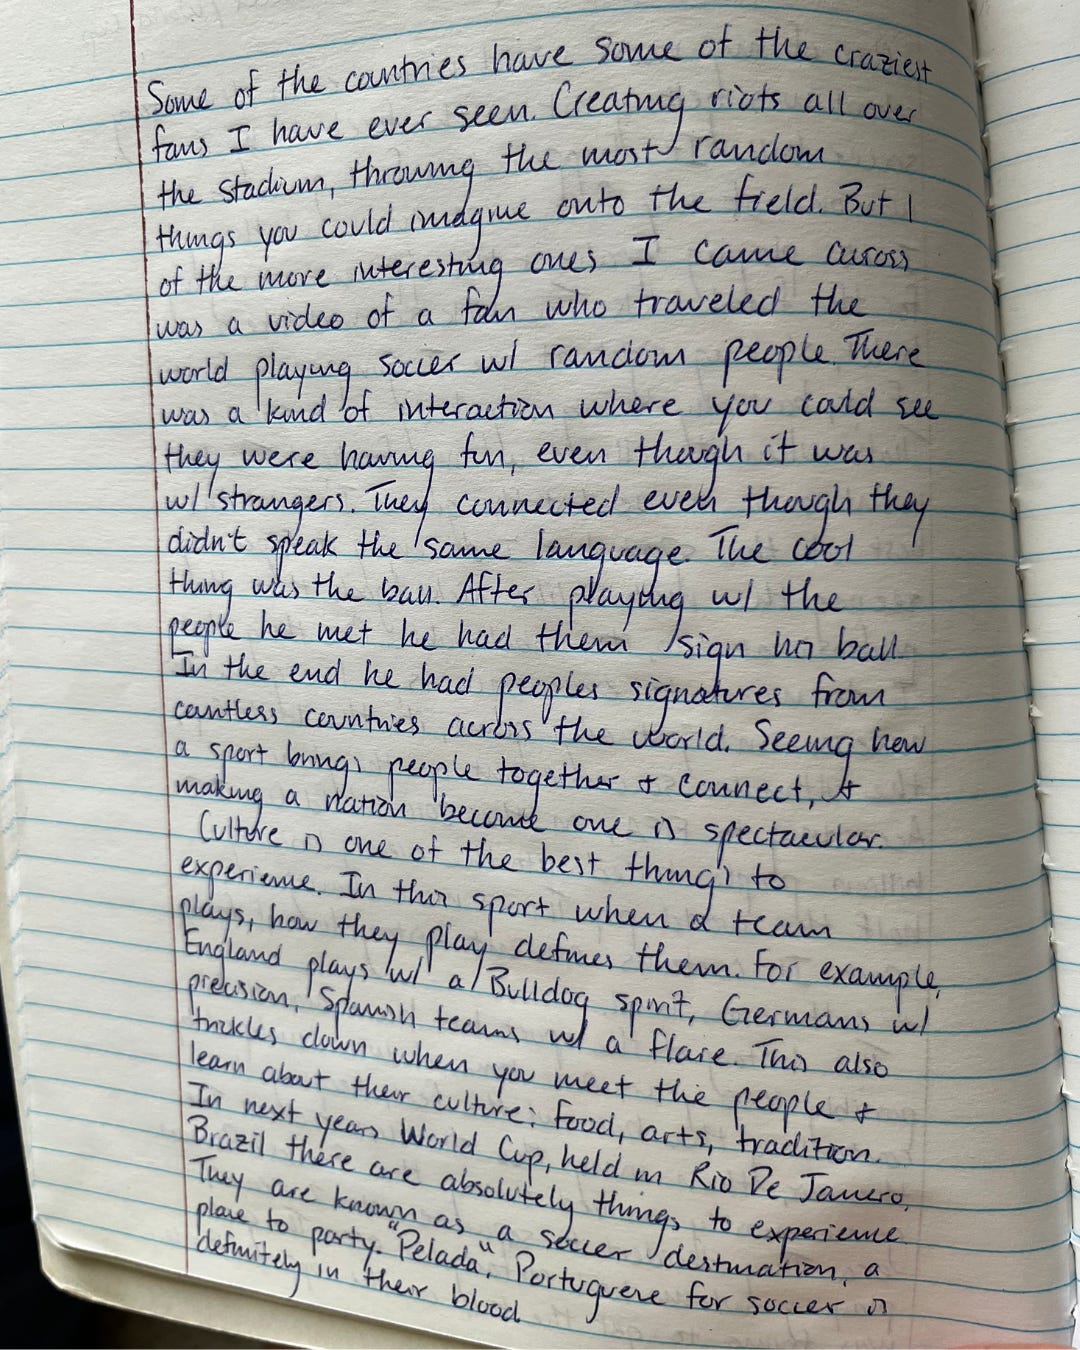 Some of the countries have some of the craziest
fans I have ever seen. Creating riots all over
the stadium, throwing the most random
things you could imagine onto the field. But 1
of the more interesting ones I came across
was a video of a fan who traveled the
world playing soccer w/ random people. There
was a kind of interaction where you could see
they were having fun, even though it was
w/ strangers. They connected even though they
didn't speak the same language. The cool
thing was the ball. After playing w/ the
people he met he had them sign his ball.
In the end he had peoples signatures from
countless countries across the world. Seeing how
a sport brings people together + connect, +
making a nation become one is spectacular.
Culture is one of the best things to
experience. In this sport when a team
plays, how they play defines them. For example,
England plays w/ a Bulldog spirit, Germans w/
precision, Spanish teams w/ a flare. This also
trickles down when you meet the people +
learn about their culture: food, arts, tradition.
In next years World Cup, held in Rio De Janero,
Brazil there are absolutely things to experience
They are known as a soccer destination, a
place to party. "Pelada", Portuguese for soccer is
definitely in their blood